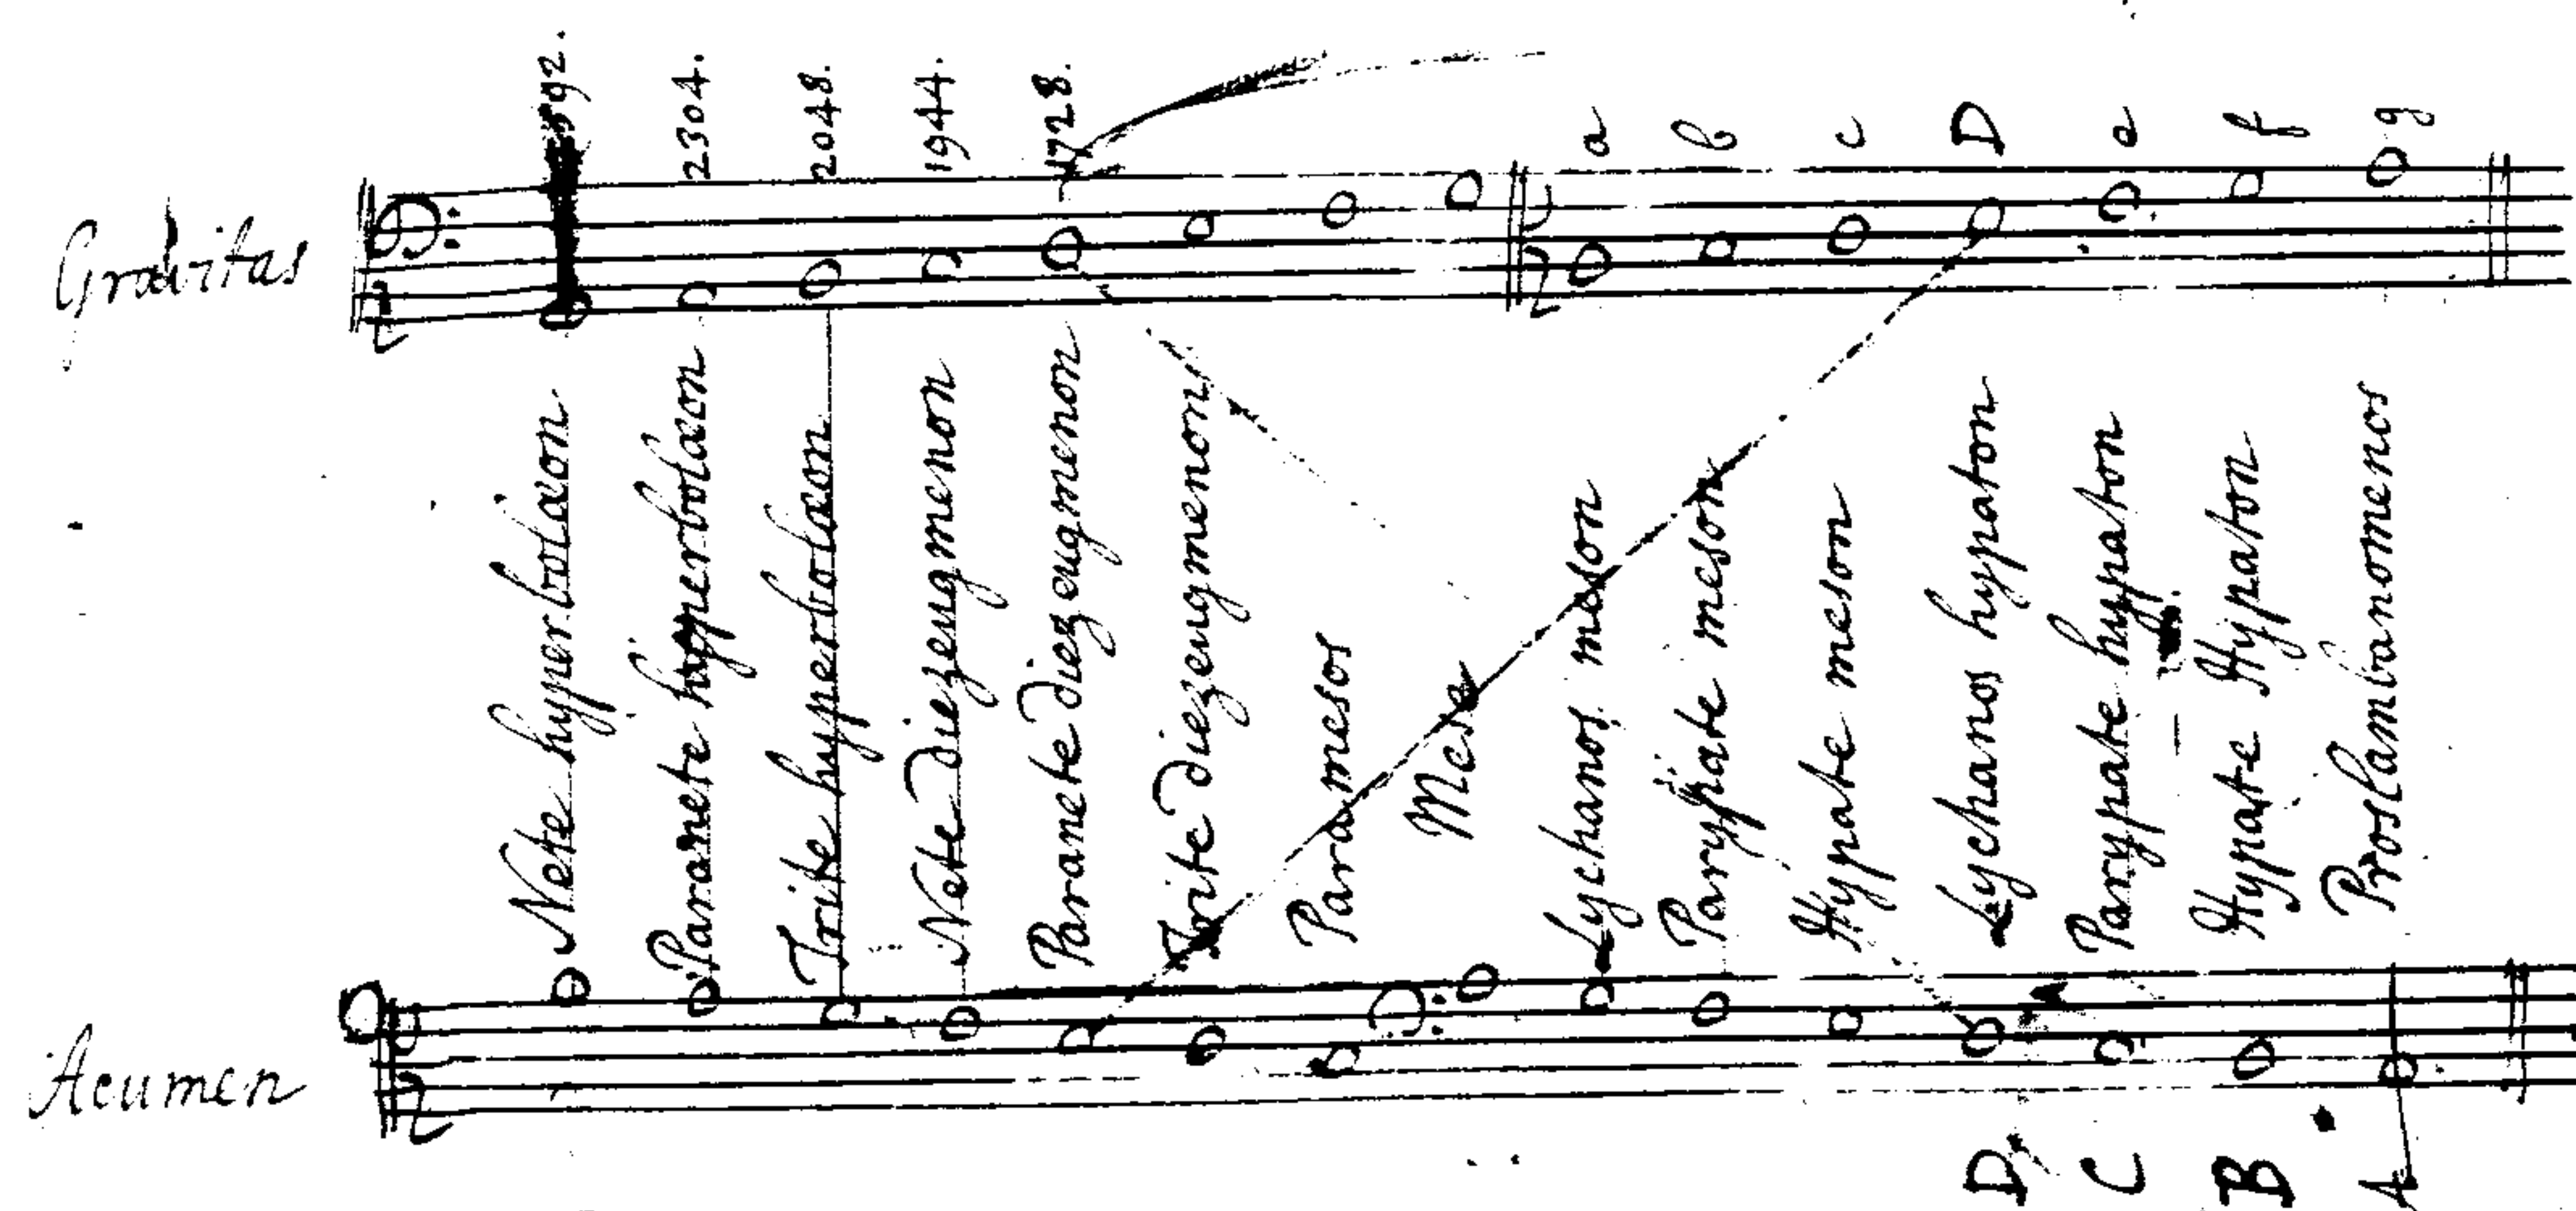 2304. 2048. 1944. 1728. a b c D e f g
Gravitas
Nete hyperbolæon
Paranete hyperbolæon
Trite hyperbolæon
Nete diezeugmenon
Paranete diezeugmenon
Trite diezeugmenon
Paramesos
Mese
Lychanos meson
Parypate meson
Hypate meson
Lychanos hypaton
Parypate hypaton
Hypate Hypaton
Proslambanomenos
Acumen
D C B A